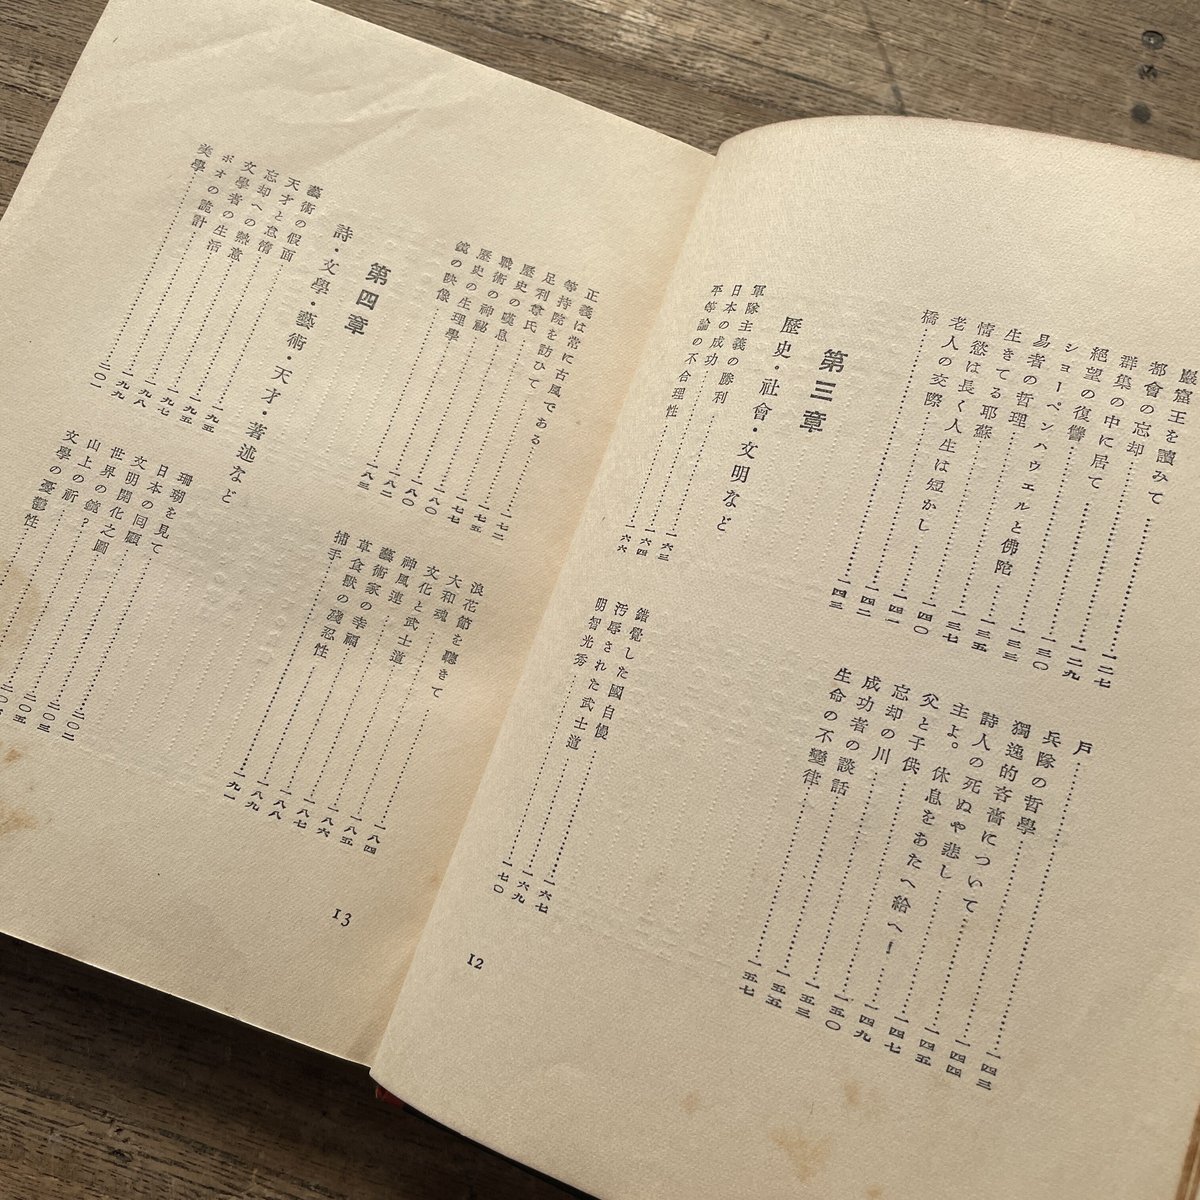 巖窟王を讀みて……一二七
都會の忘却……一二九
群集の中に居て……一三〇
絕望の復讐……一三三
ショーペンハウエルと佛陀……一三五
易者の哲理……一三七
生きてる耶蘇……一四〇
情慾は長く人生は短かし……一四一
老人の交際……一四二
橋……一四三
戶……一四三
兵隊の哲學……一四四
獨逸的吝嗇について……一四五
詩人の死ぬや悲し……一四七
主よ。休息をあたへ給へ!……一四九
父と子供……一五〇
忘却の川……一五三
成功者の談話……一五五
生命の不變律……一五七
第三章
歷史・社會・文明など
軍隊主義の勝利……一六三
日本の成功……一六四
平等論の不合理性……一六六
錯覺した國自慢……一六七
汚辱された武士道……一六九
明智光秀……一七〇
12
正義は常に古風である……一七二
等持院を訪ひて……一七五
足利尊氏……一七七
歷史の嘆息……一八〇
戰術の神祕……一八〇
歷史の生理學……一八二
鏡の映像……一八三
浪花節を聽きて……一八四
大和魂……一八五
文化と武士道……一八六
神風連……一八七
藝術家の幸福……一八八
草食獸の殘忍性……一八九
捕手……一九一
第四章
詩・文學・藝術・天才・著述など
藝術の假面……一九五
天才と怠惰……一九五
忘却への熱意……一九七
文學者の生活……一九八
ポオの詭計……一九九
美學……二〇一
珊瑚を見て……二〇二
日本の回顧……二〇三
文明開化之圖……二〇五
世界の鏡?
山上の祈
文學の憂鬱性
13